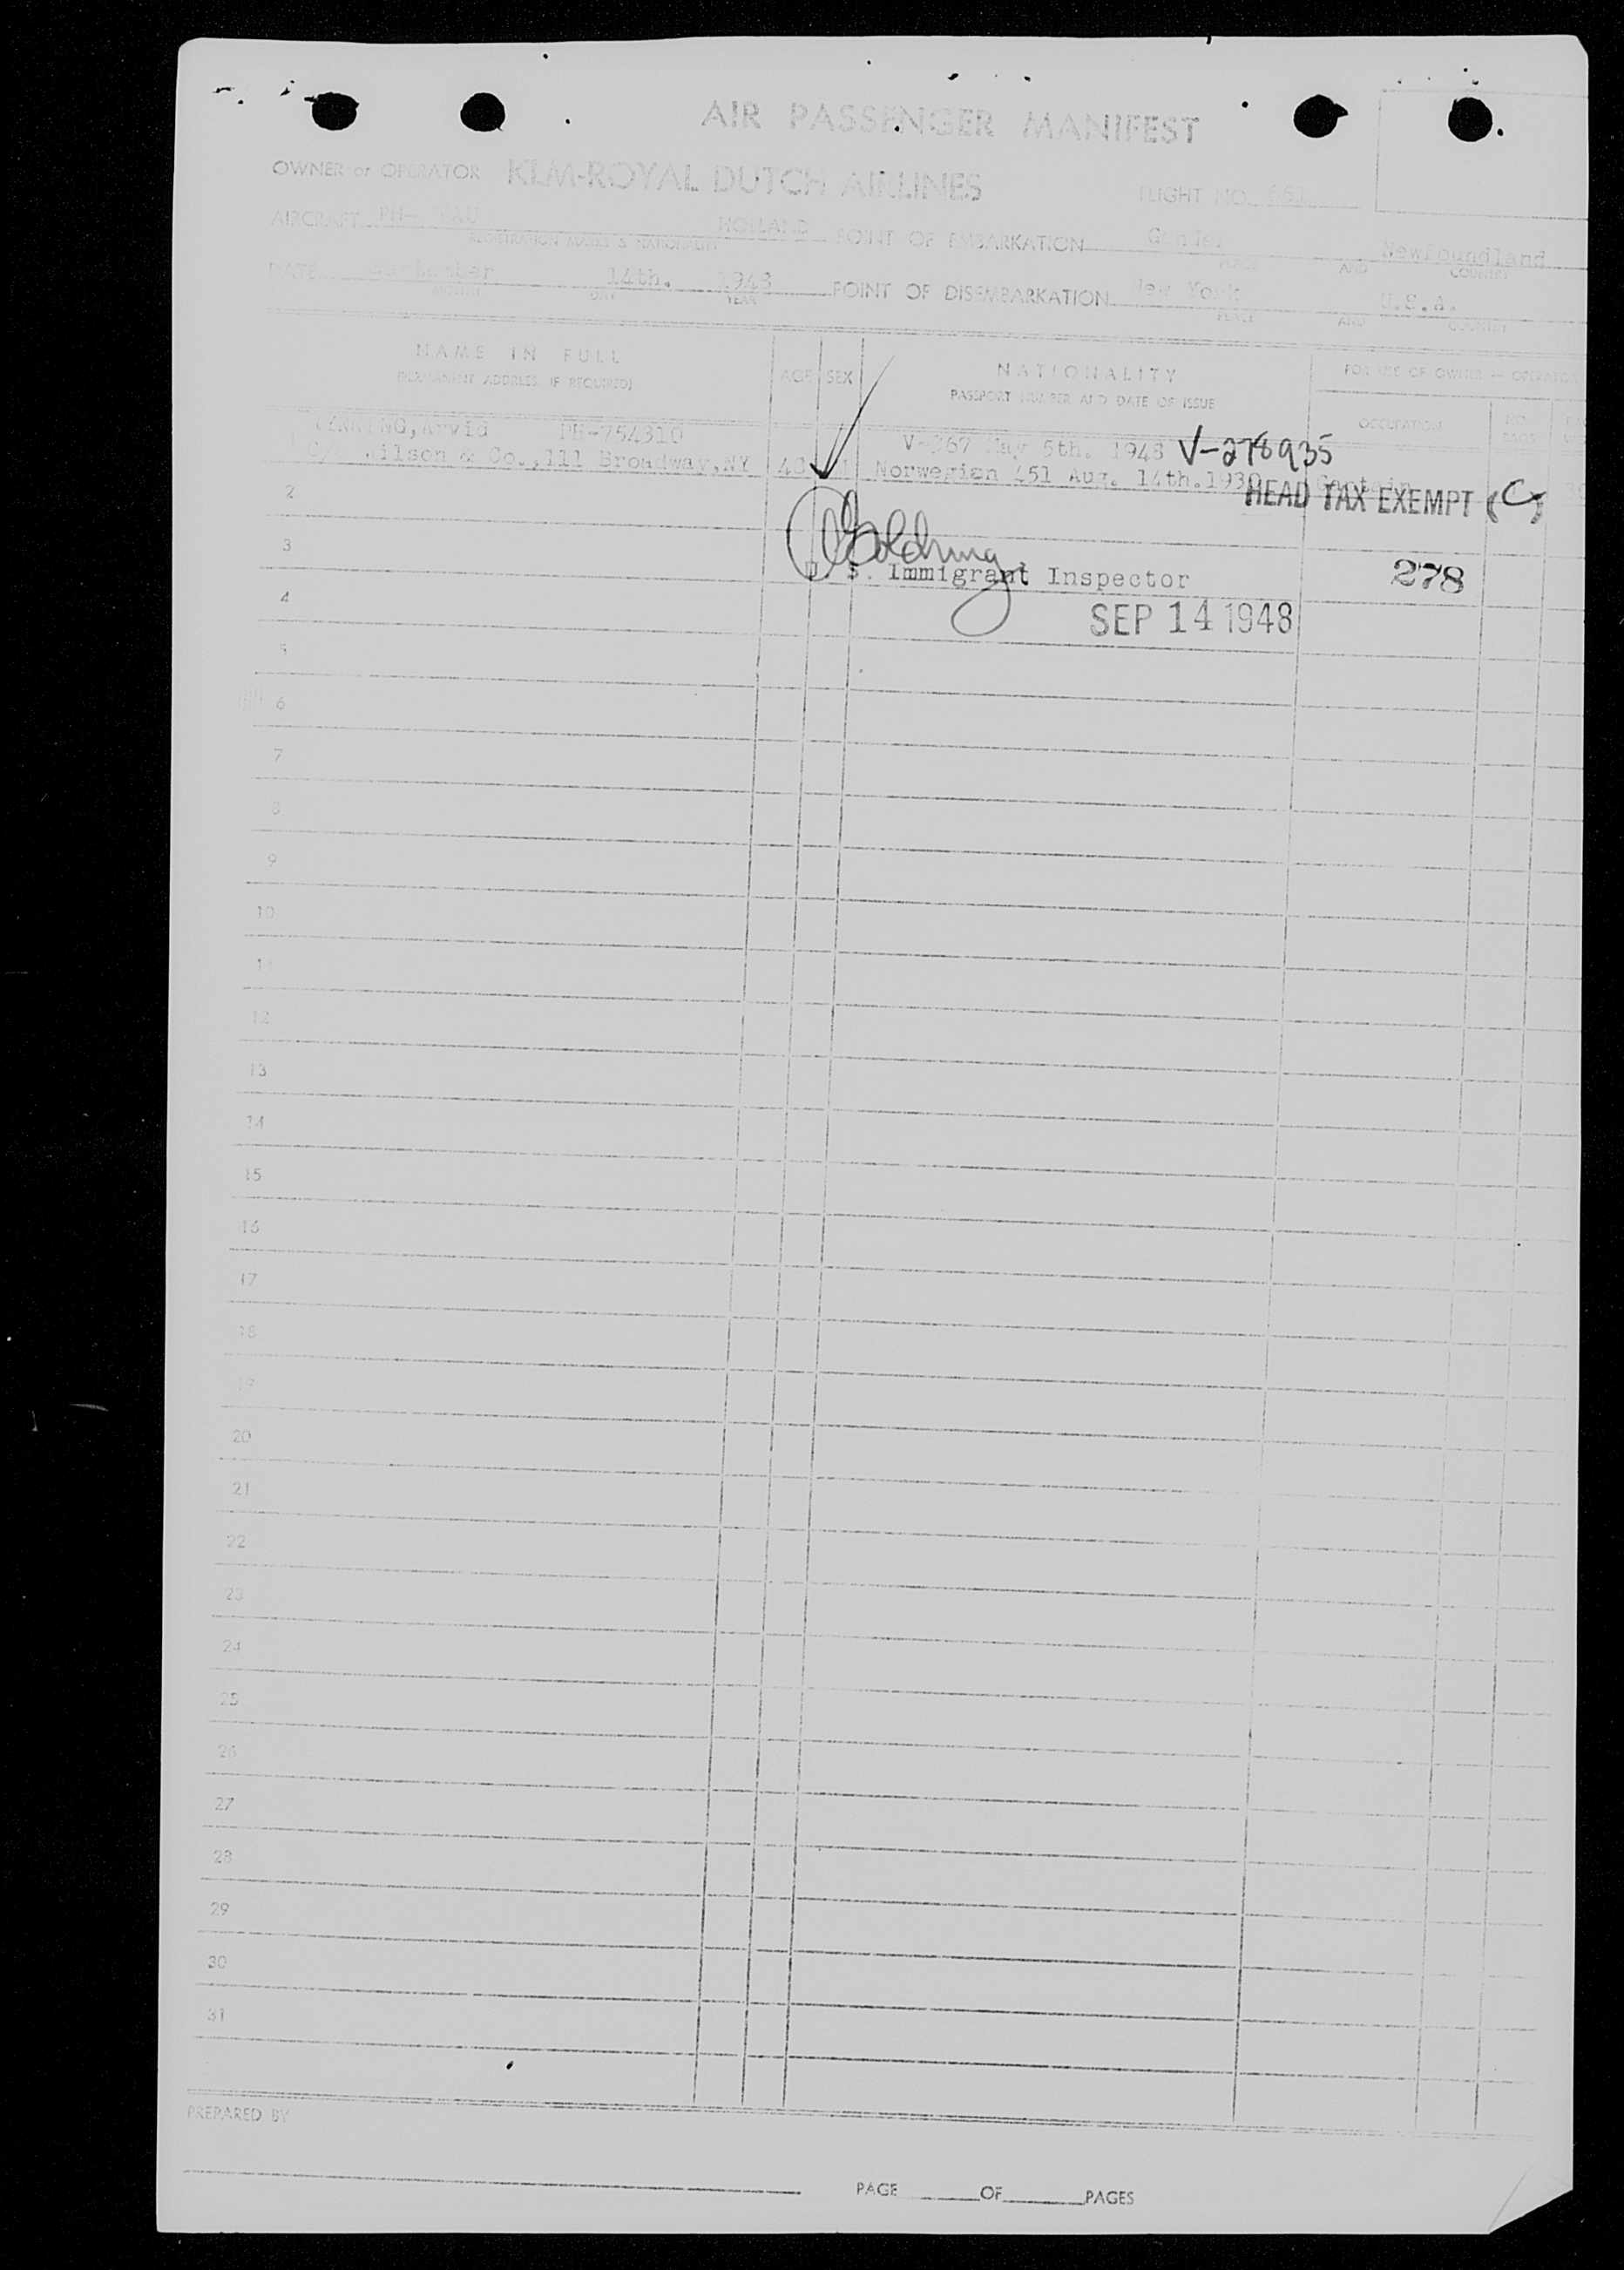 AIR PASSENGER MANIFEST
OWNER or OPERATOR KLM-ROYAL DUTCH AIRLINES FLIGHT NO.
AIRCRAFT PH- HOLLAND POINT OF EMBARKATION Gander Newfoundland
REGISTRATION MARKS & NATIONALITY PLACE AND COUNTRY
DATE September 14th. 1948 POINT OF DISEMBARKATION New York U.S.A.
MONTH DAY YEAR PLACE AND COUNTRY
NAME IN FULL
(PERMANENT ADDRESS IF REQUIRED)
AGE SEX
NATIONALITY
PASSPORT NUMBER AND DATE OF ISSUE
FOR USE OF OWNER — OPERATOR
OCCUPATION NO. BAGS
Arvid PH-754310 May 5th. 1948 V-278935
Wilson & Co.,111 Broadway,NY Norwegian 451 Aug. 14th.1939 Captain
HEAD TAX EXEMPT (C)
2
3
U. S. Immigrant Inspector 278
4
SEP 14 1948
5
6
7
8
9
10
11
12
13
14
15
16
17
18
19
20
21
22
23
24
25
26
27
28
29
30
31
PREPARED BY
PAGE OF PAGES